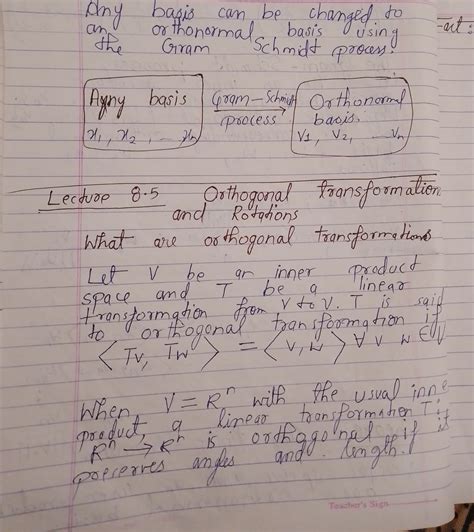 Any basis can be changed to
an orthonormal basis using
the Gram Schmidt process.
-ut:
Any basis
x1, x2, ... xn
Gram-Schmidt
process
Orthonormal
basis.
v1, v2, ... vn
Lecture 8.5 Orthogonal transformation
and Rotations
What are orthogonal transformations
Let V be an inner product
space and T be a linear
transformation from V to V. T is said
to orthogonal transformation if
⟨Tv, Tw⟩ = ⟨v, w⟩ ∀ v w ∈ V
When V = Rⁿ with the usual inne
product, a linear transformation T:
Rⁿ → Rⁿ is orthogonal if it
preserves angles and length.
Teacher's Sign